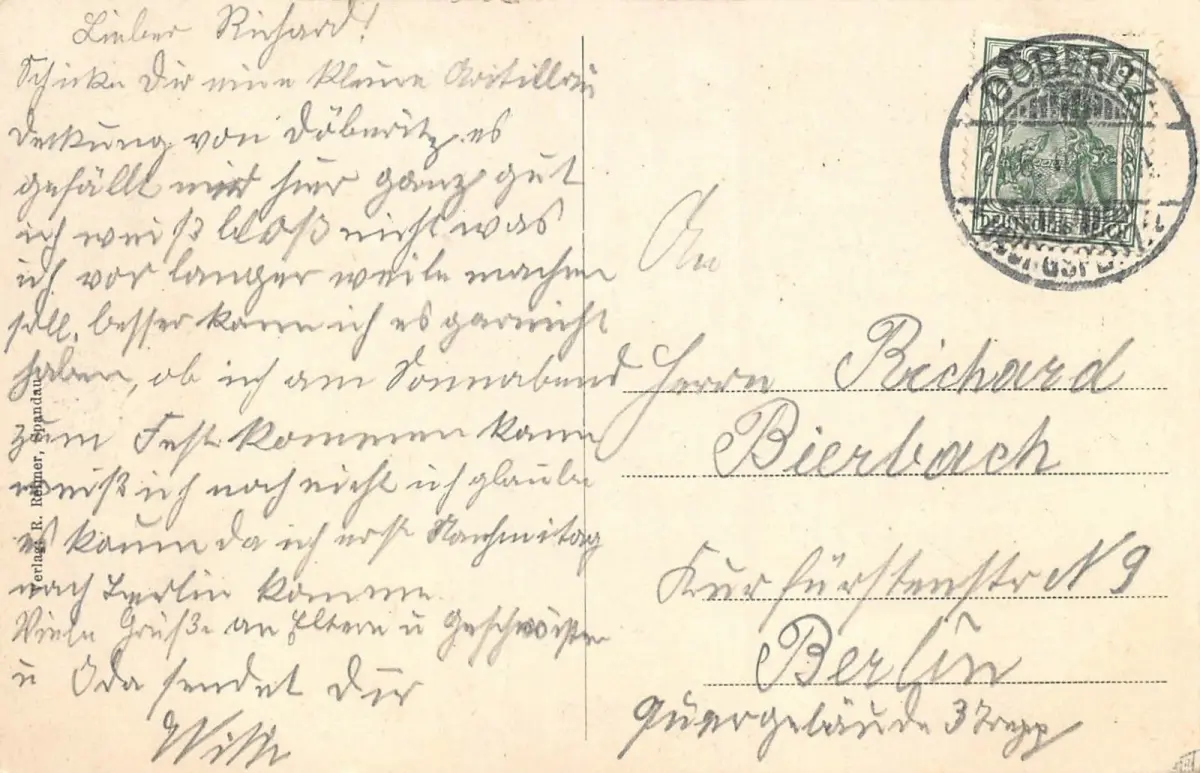 Lieber Richard!
Schicke Dir eine kleine Artillerie
deckung von Döberitz, es
gefällt mir hier ganz gut
ich weiß bloß nicht was
ich vor langer weile machen
soll, besser kann ich es garnicht
haben, ob ich am Sonnabend
zum Fest kommen kann
weiß ich noch nicht ich glaube
es kaum da ich erst Nachmitag
nach Berlin komme.
Viele Grüße an Eltern u Geschwister
u Oda sendet Dir
Willi
Verlag: R. Reimer, Spandau
DÖBERITZ
DEUTSCHES REICH
An
Herrn Richard
Bierbach
Kurfürstenstr N 9
Berlin
Quergebäude 3 Trepp